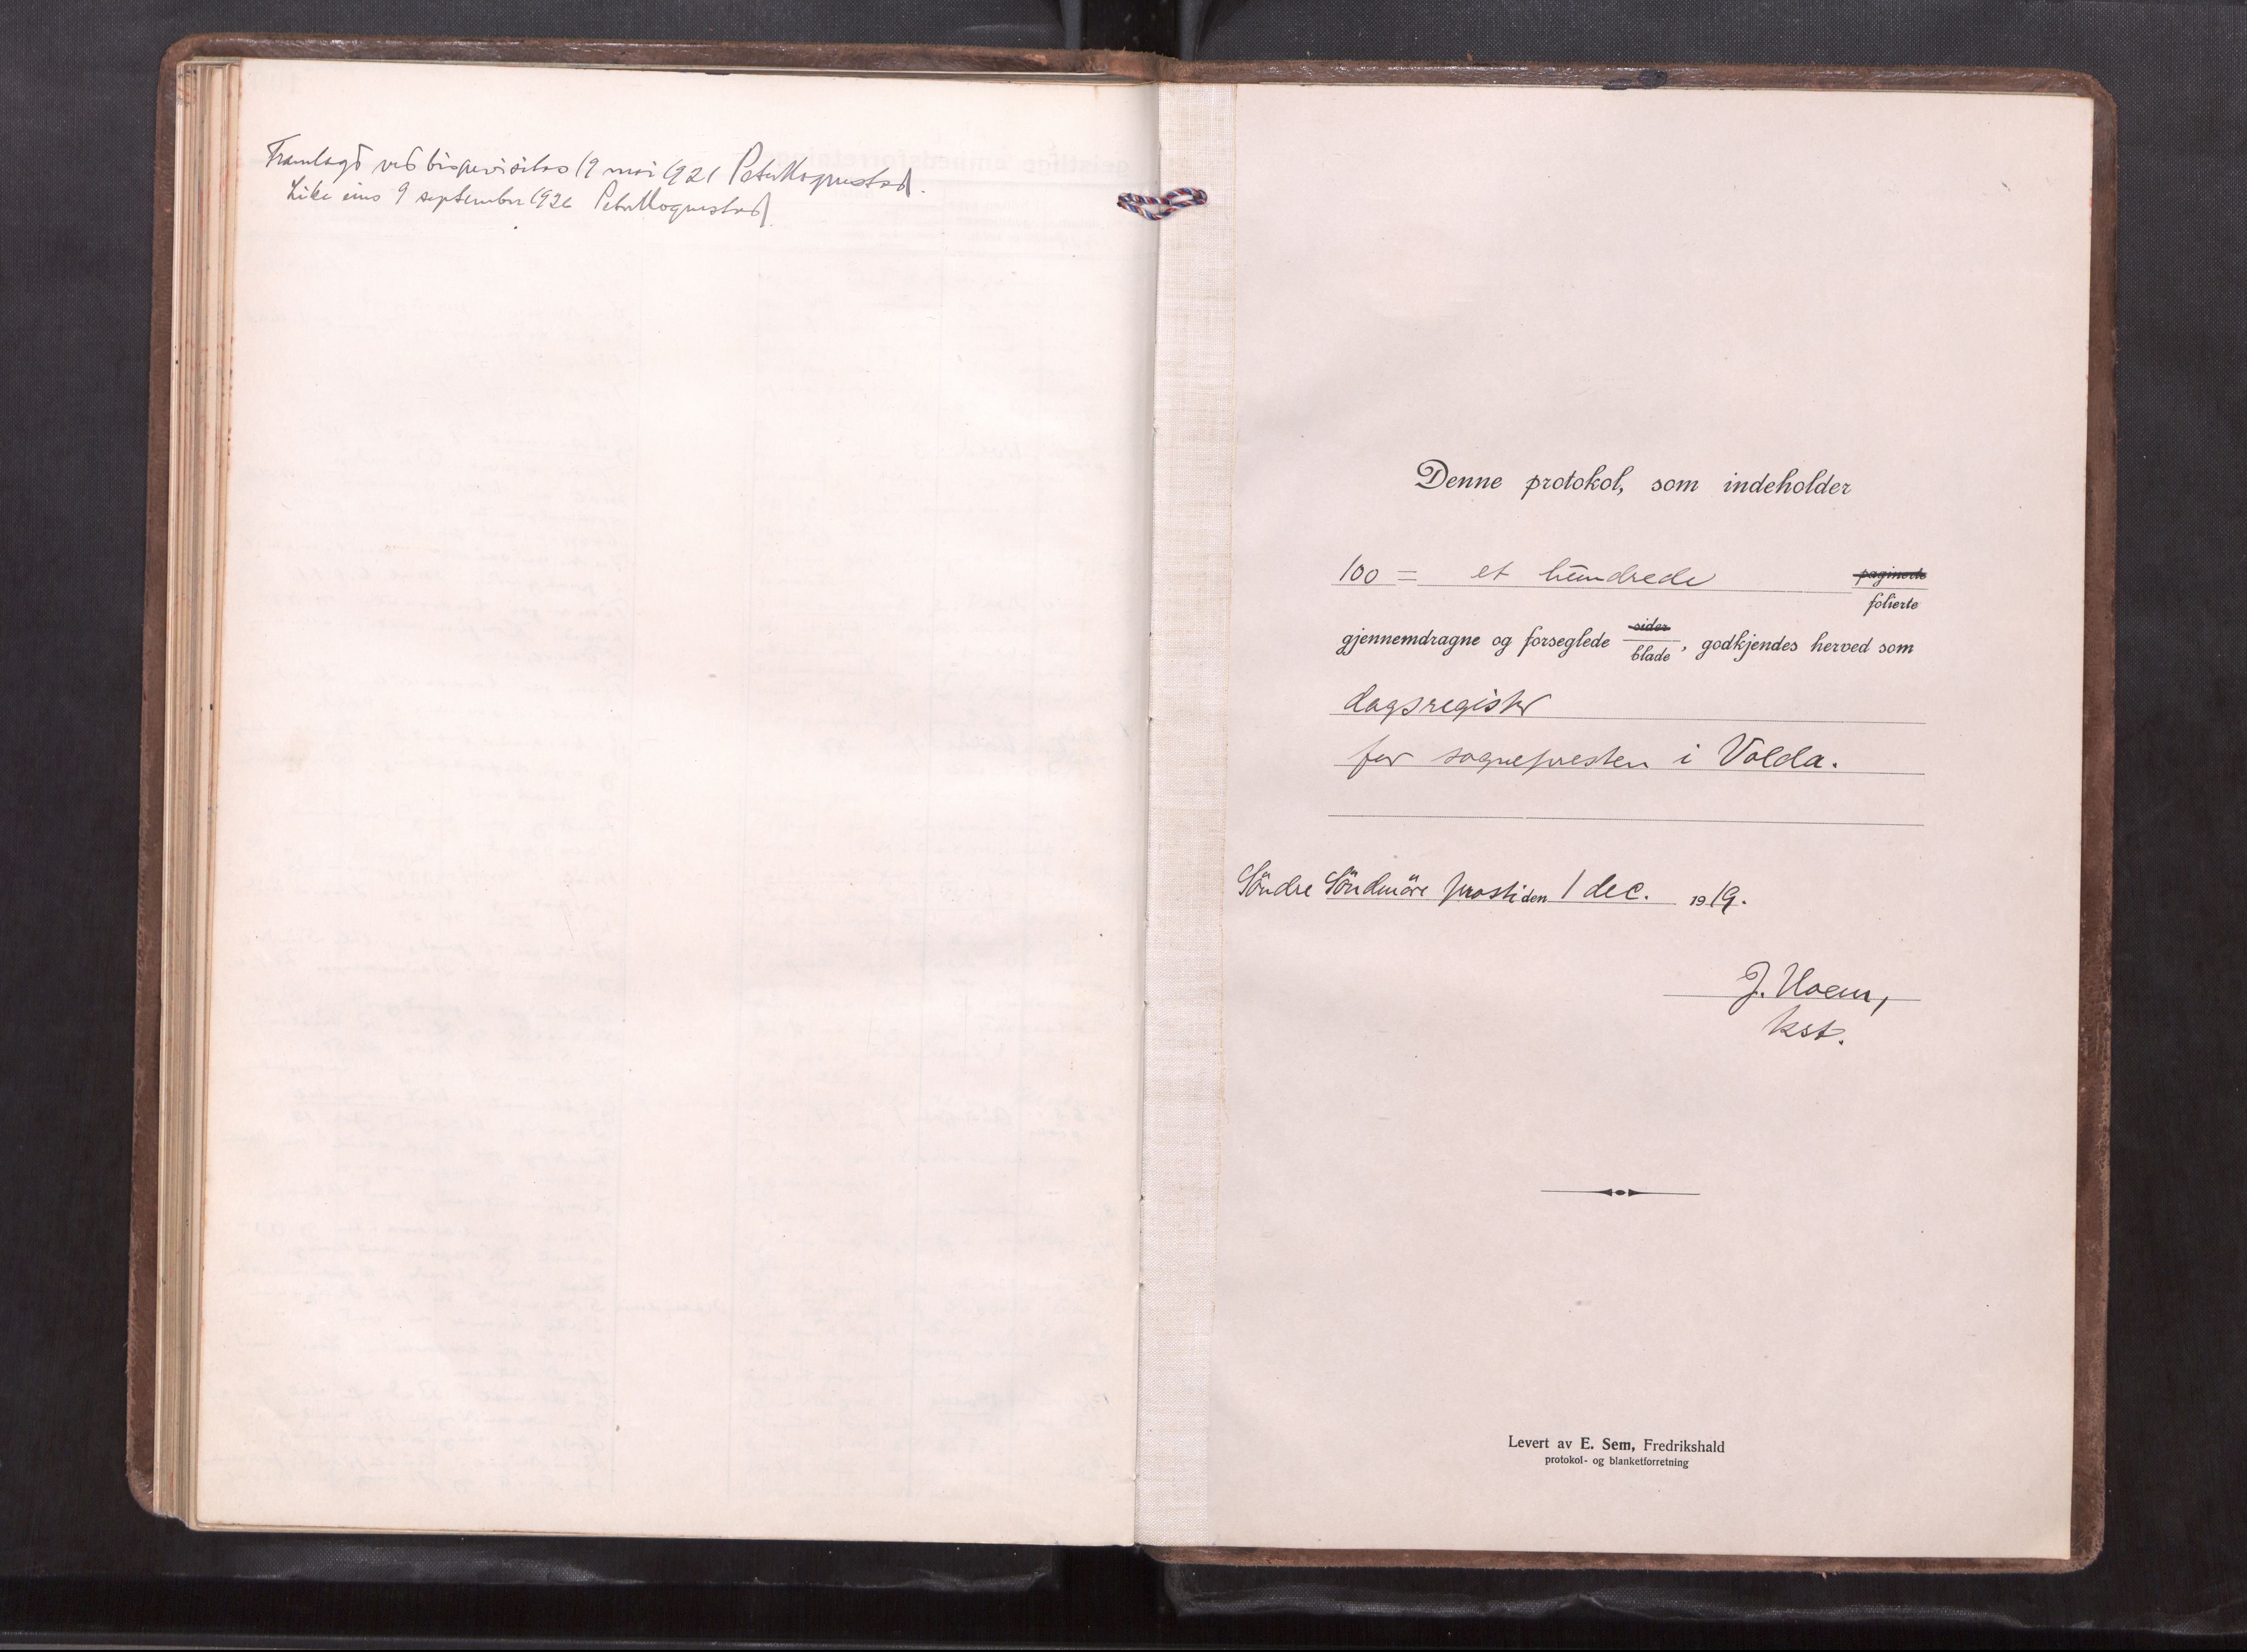 Framlagt ved bispevisitas 19 mai 1921 Peter Hognestad.
Like eins 9 september 1926 Peter Hognestad.
Denne protokol, som indeholder
100 = et hundrede paginerte
folierte
gjennemdragne og forseglede sider
blade, godkjendes herved som
dagsregister
for sognepresten i Volda.
Söndre Söndmöre prosti den 1 dec. 1919.
J. Hoem,
kst.
Levert av E. Sem, Fredrikshald
protokol- og blanketforretning